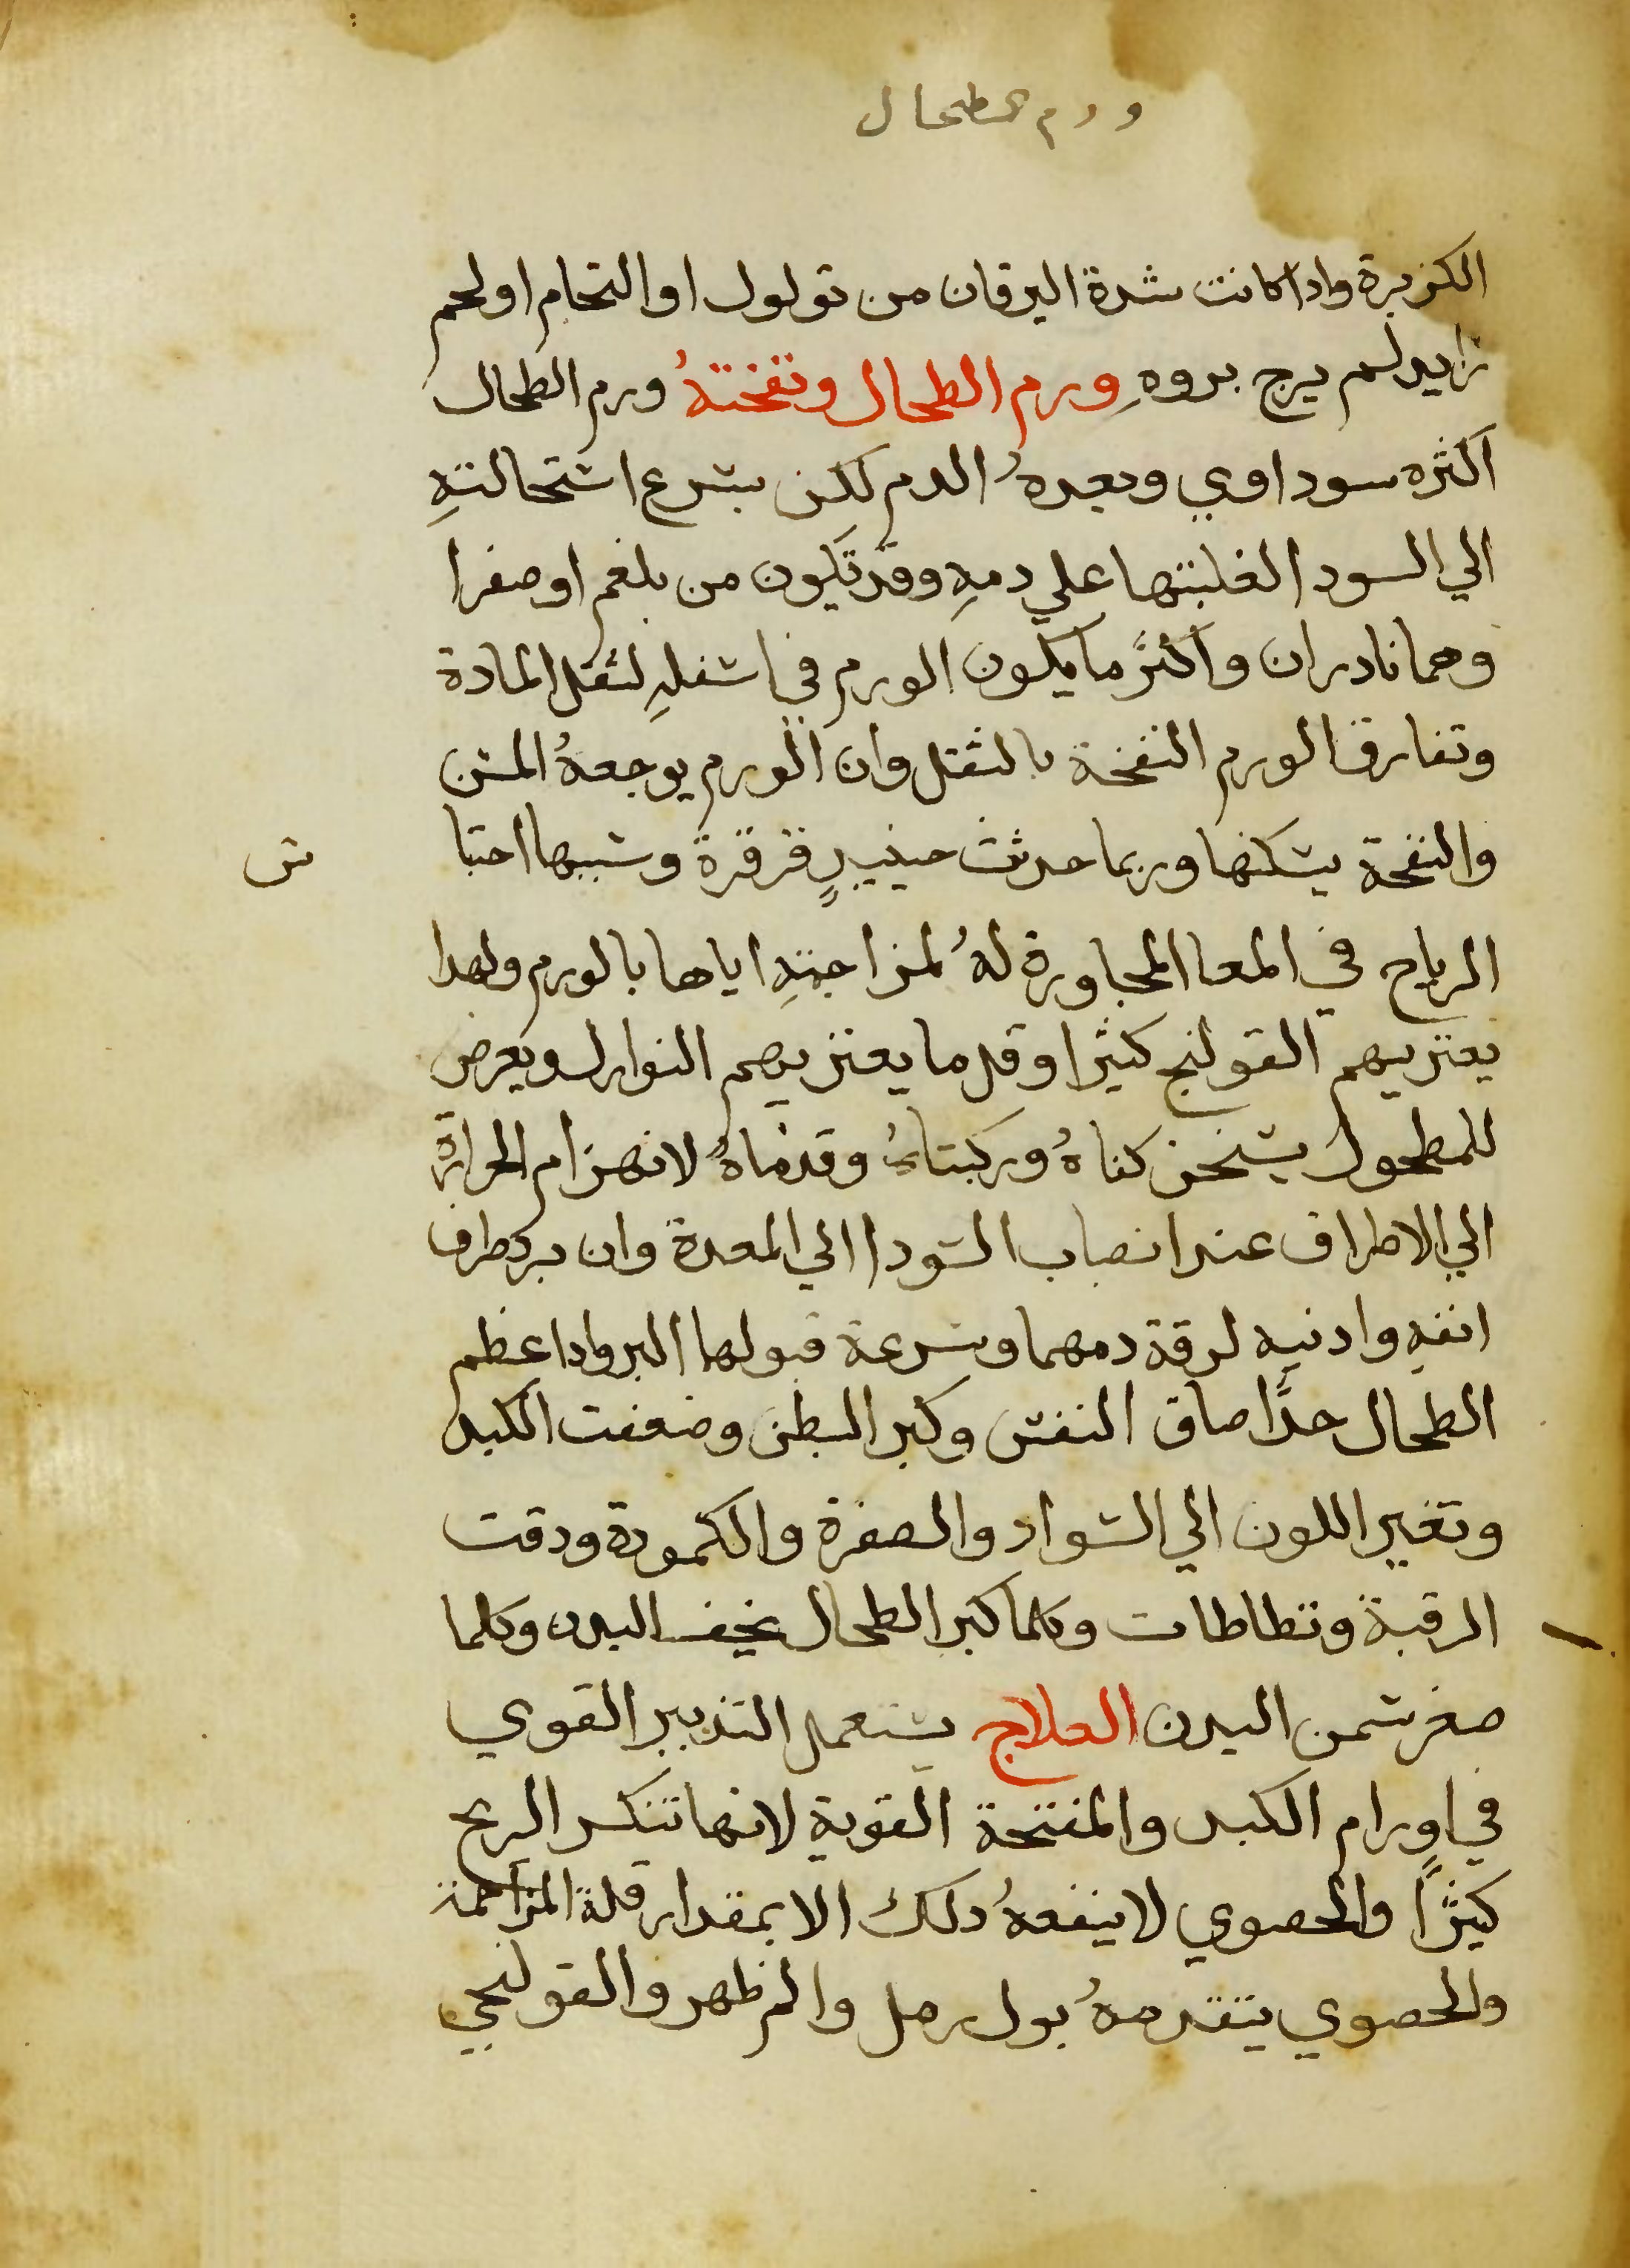 ورم الطحال
الكزبرة وادا كانت شدة اليرقان من تولول او التحام او لحم
زايد لم يرج بروه ورم الطحال ونفخته ورم الطحال
اكثره سوداوي وبعده الدم لكن يسرع استحالته
الي السودا لغلبتها علي دمه وقد تكون من بلغم او صفرا
وهما نادران واكثر ما يكون الورم في اسفله لثقل المادة
وتفارق الورم النفخة بالثقل وان الورم يوجعه المس
والنفخة يسكنها وربما حدثت حينيد قرقرة وسببها احتبا
س
الرياح في المعا المجاورة له لمزاحمته اياها بالورم ولهدا
يعتريهم القولنج كثيرا وقل ما يعتريهم النوازل ويعرض
للمطحول يسخن كفاه وركبتاه وقدماه لانهزام الحرارة
الي الاطراف عند انصباب السودا الي المعدة وان برد طرف
انفه وادنيه لرقة دمهما وسرعة قبولها البرد وادا عظم
الطحال جدا ضاق النفس وكبر البطن وضعفت الكبد
وتغير اللون الي السواد والصفرة والكمودة ودقت
الرقبة وتطاطات وكلما كبر الطحال نحف البدن وكلما
صغر سمن البدن العلاج يستعمل التدبير القوي
في اورام الكبد والمفتحة القوية لانها تنكسر الريح
كثيرا والحصوي لا ينفعه دلك الا بمقدار قلة المزاحمة
والحصوي يتقدمه بول رمل والم ظهر والقولنجي